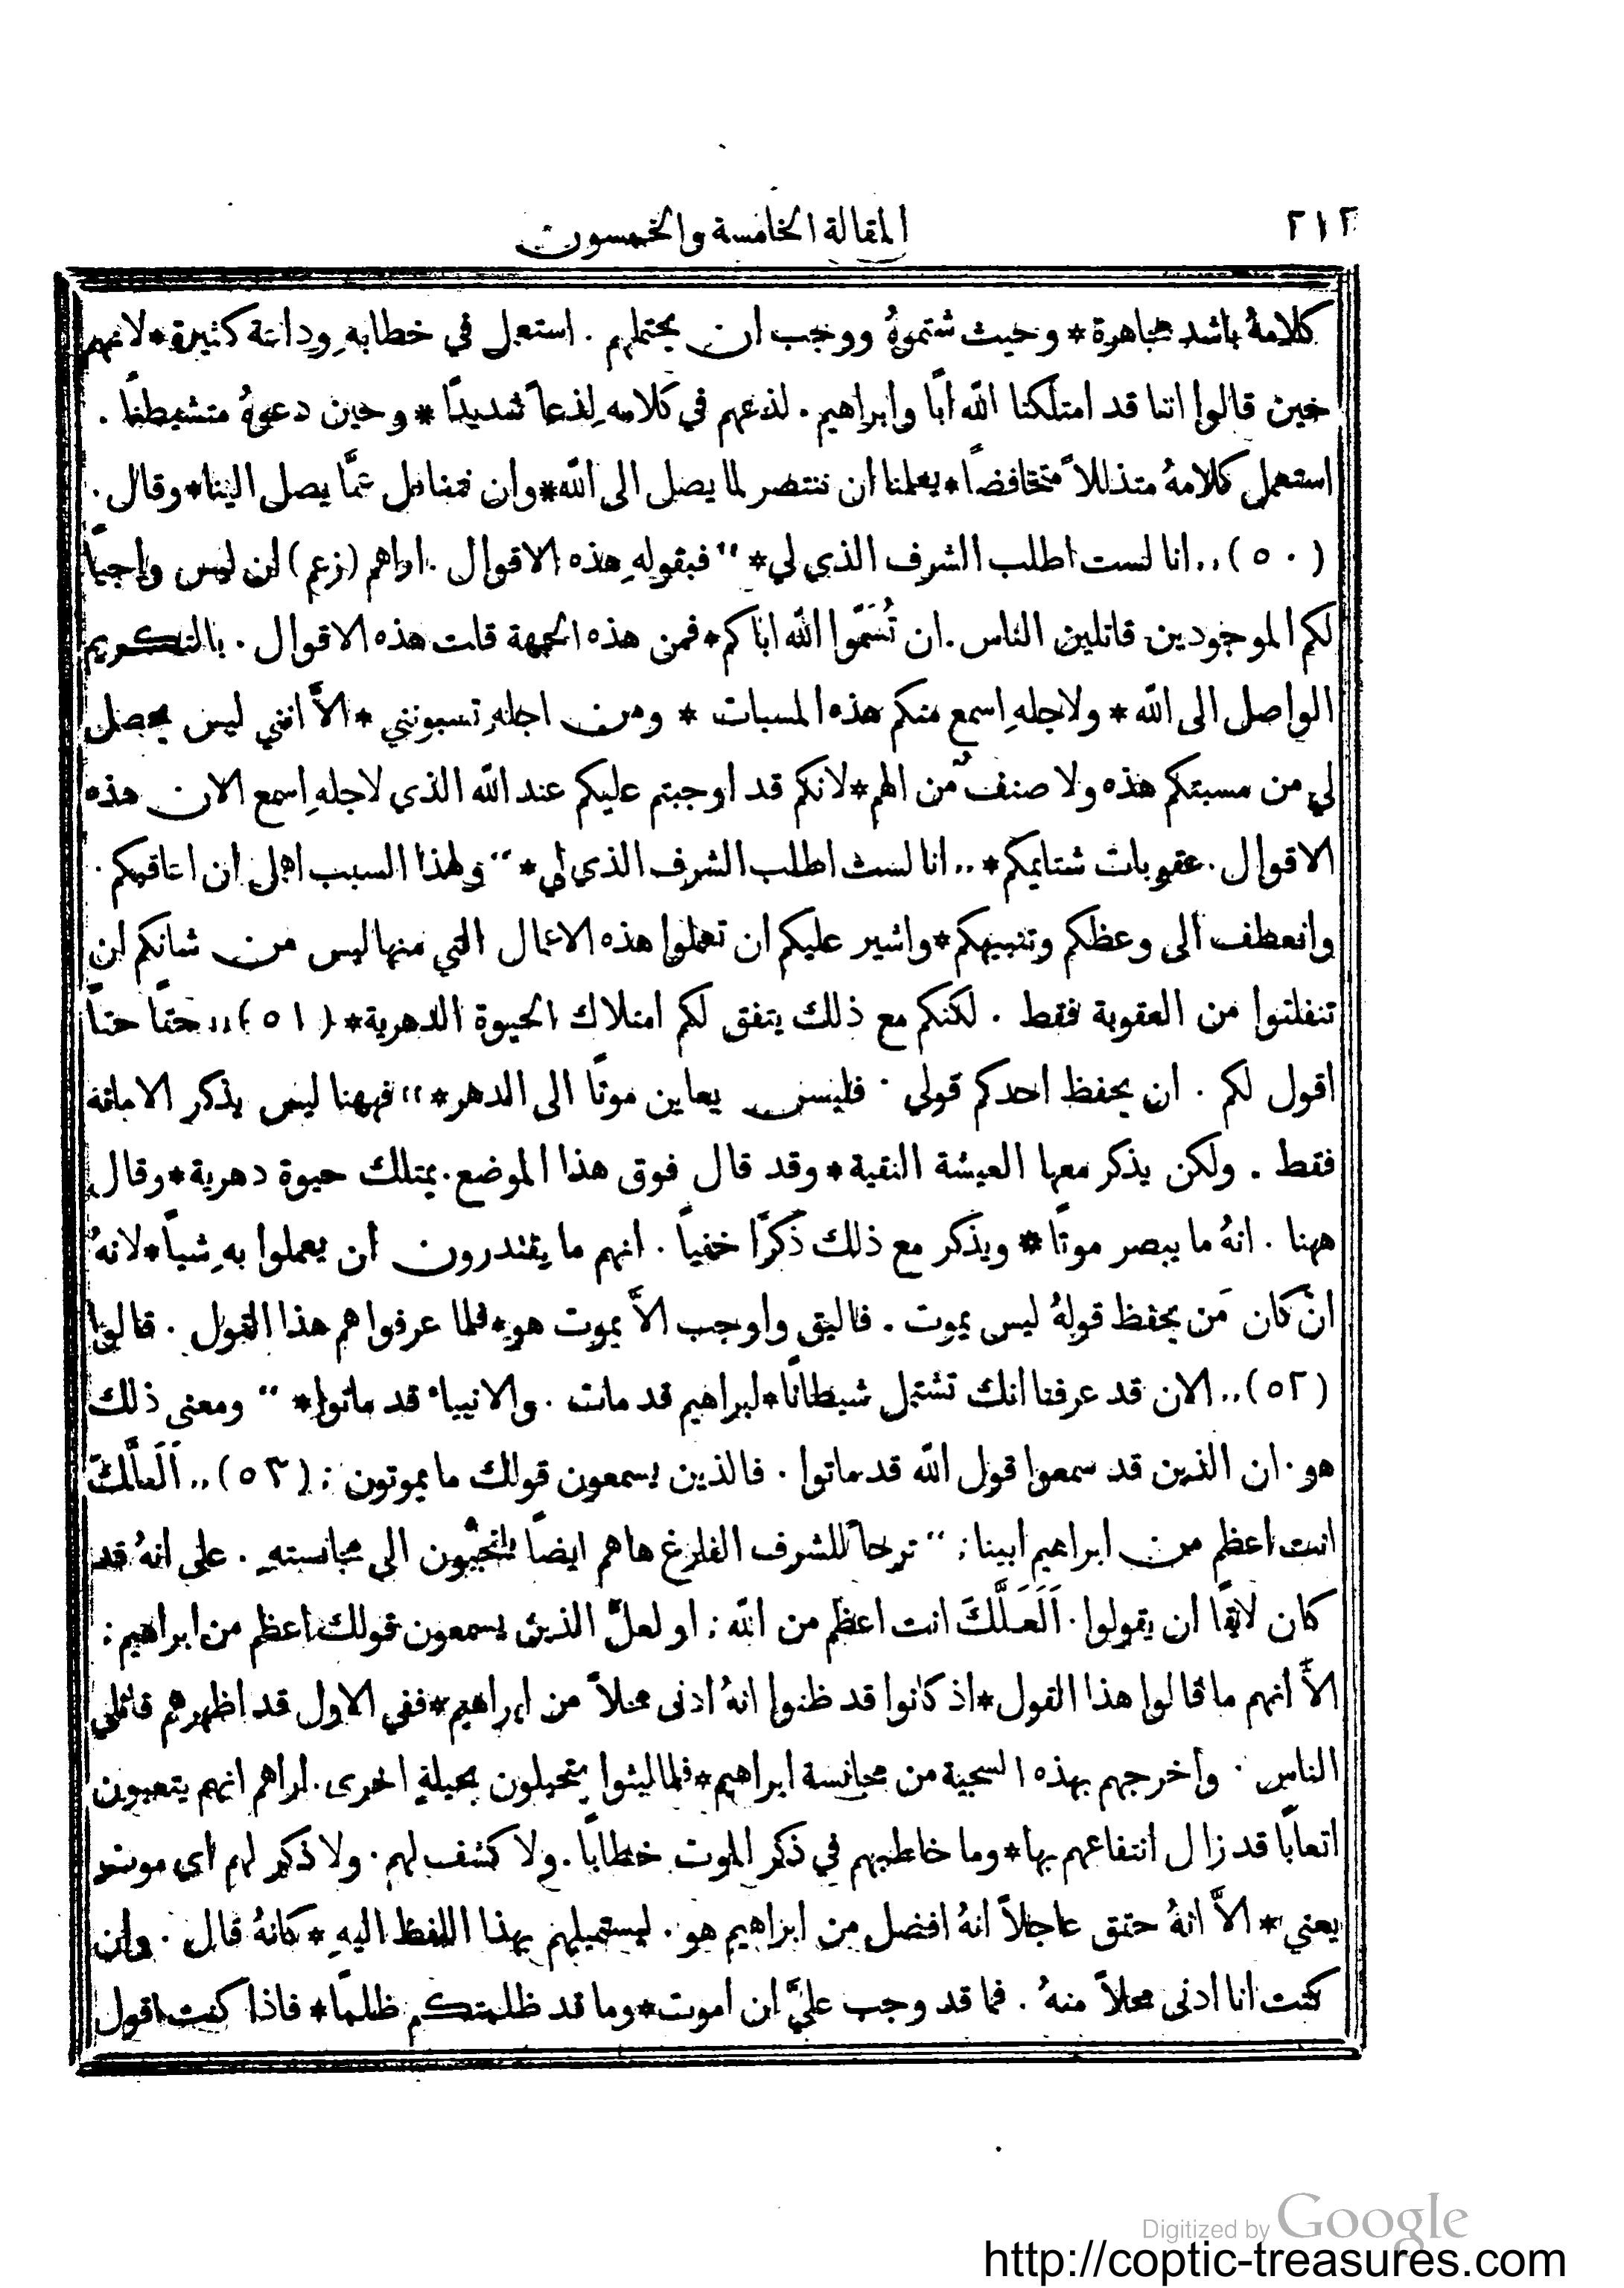 ٢١٢
المقالة الخامسة والخمسون
كلامهُ باشد مجاهرة* وحيث شتموهُ ووجب ان يحتملهم . استعمل في خطابهِ وداعة كثيرة* لانهم
حين قالوا اننا قد امتلكنا الله ابًا وابراهيم . لذعهم في كلامهِ لذعاً شديدًا * وحين دعوهُ متشيطنًا .
استعمل كلامهُ متذللاً متخافضًا* يعلمنا ان ننتصر لما يصل الى الله* وان نتغافل عمَّا يصل الينا* وقال .
(٥٠) ,, انا لست اطلب الشرف الذي لي* ‟ فبقولهِ هذه الاقوال . اراهم (زعم) ان ليس واجبًا
لكم الموجودين قاتلين الناس . ان تُسَمّوا الله اباكم* فمن هذه الجهة قلت هذه الاقوال . بالتكريم
الواصل الى الله* ولاجلهِ اسمع منكم هذه المسبات * ومن اجلهِ تسبونني* الاَّ انني ليس يحصل
لي من مسبتكم هذه ولا صنفٌ من الهم* لانكم قد اوجبتم عليكم عند الله الذي لاجلهِ اسمع الان هذه
الاقوال . عقوبات شتايمكم* ,, انا لست اطلب الشرف الذي لي* ‟ ولهذا السبب اهمل ان اعاقبكم .
وانعطف الى وعظكم وتنبيهكم* واشير عليكم ان تعملوا هذه الاعمال التي منها ليس من شانكم ان
تنفلتوا من العقوبة فقط . لكنكم مع ذلك يتفق لكم امتلاك الحيوة الدهرية* (٥١) ,, حقًا حقاً
اقول لكم . ان يحفظ احدكم قولي . فليس يعاين موتًا الى الدهر* ‟ فههنا ليس يذكر الامانة
فقط . ولكن يذكر معها العيشة النقية* وقد قال فوق هذا الموضع . يمتلك حيوة دهرية* وقال
ههنا . انهُ ما يبصر موتًا* ويذكر مع ذلك ذكرًا خفياً . انهم ما يقتدرون ان يعملوا بهِ شياً* لانهُ
ان كان مَن يحفظ قولهُ ليس يموت . فاليق واوجب الاَّ يموت هو* فلما عرفوا هم هذا القول . قالوا
(٥٢) ,, الان قد عرفنا انك تشتمل شيطانًا* ابراهيم قد مات . والانبياء قد ماتوا* ‟ ومعنى ذلك
هو . ان الذين قد سمعوا قول الله قد ماتوا . فالذين يسمعون قولك ما يموتون ; (٥٣) ,, أَلَعلَّكَ
انت اعظم من ابراهيم ابينا ; ‟ ترحاً للشرف الفارغ ها هم ايضًا يلتجئون الى مجانستهِ . على انهُ قد
كان لايقًا ان يقولوا . أَلَعَلَّكَ انت اعظم من الله ; او لعلَّ الذين يسمعون قولك اعظم من ابراهيم ;
الاَّ انهم ما قالوا هذا القول* اذ كانوا قد ظنوا انهُ ادنى محلاً من ابراهيم* ففي الاول قد اظهرهم قاتلي
الناس . واخرجهم بهذه السجية من مجانسة ابراهيم* فلما لبثوا يتحيلون بحيلةٍ اخرى . اراهم انهم يتعبون
اتعابًا قد زال انتفاعهم بها* وما خاطبهم في ذكر الموت خطابًا . ولا كشف لهم . ولا ذكر لهم اي موت
يعني* الاَّ انهُ حقق عاجلاً انهُ افضل من ابراهيم هو . ليستميلهم بهذا اللفظ اليهِ* كانهُ قال . وان
كنت انا ادنى محلاً منهُ . فما قد وجب عليَّ ان اموت* وما قد ظلمتكم ظلمًا* فاذا كنت اقول
Digitized by Google
http://coptic-treasures.com